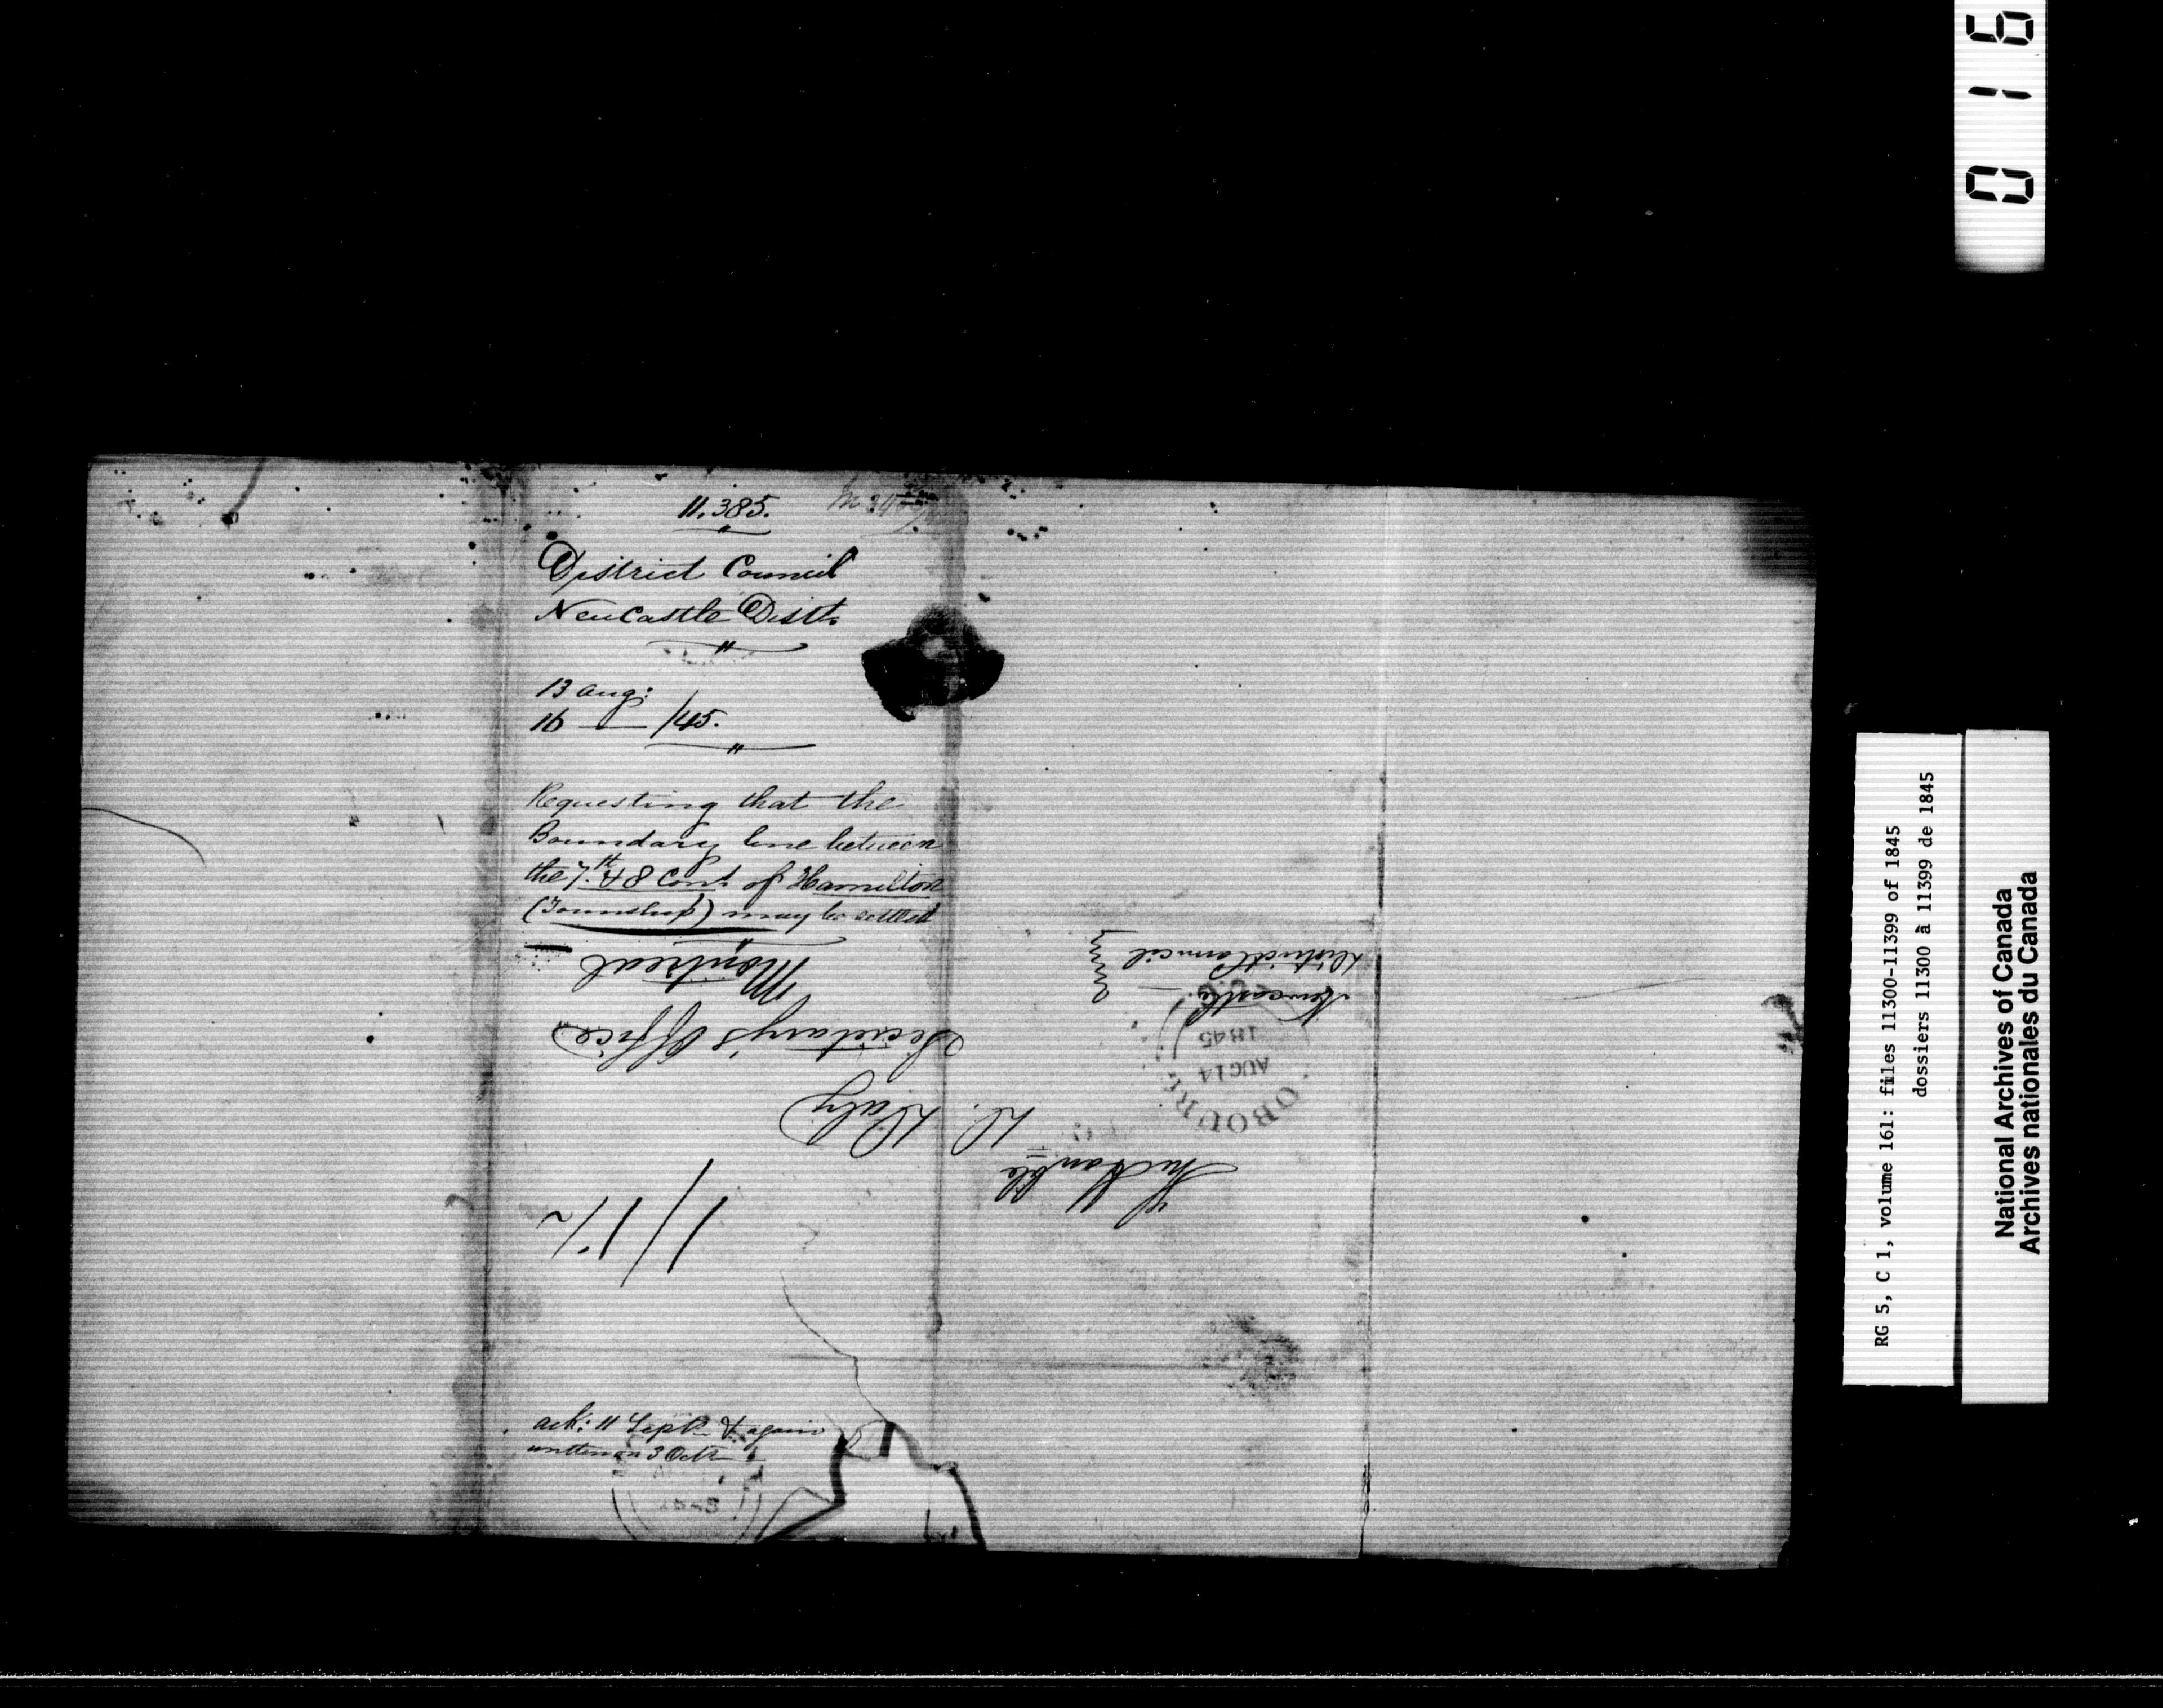 11.385.
District Council
Newcastle Distt.
13 Aug:
16 — /45.
Requesting that the
Boundary line between
the 7.th & 8 Cons. of Hamilton
(Township) may be settled
Newcastle
District Council
COBOURG
AUG 14
1845
The Honble
D. Daly
Secretary's Office
Montreal
1/1½
ack: 11 Septr & again
written on 3 Octr
0 1 6
RG 5, C 1, volume 161: files 11300-11399 of 1845
dossiers 11300 à 11399 de 1845
National Archives of Canada
Archives nationales du Canada